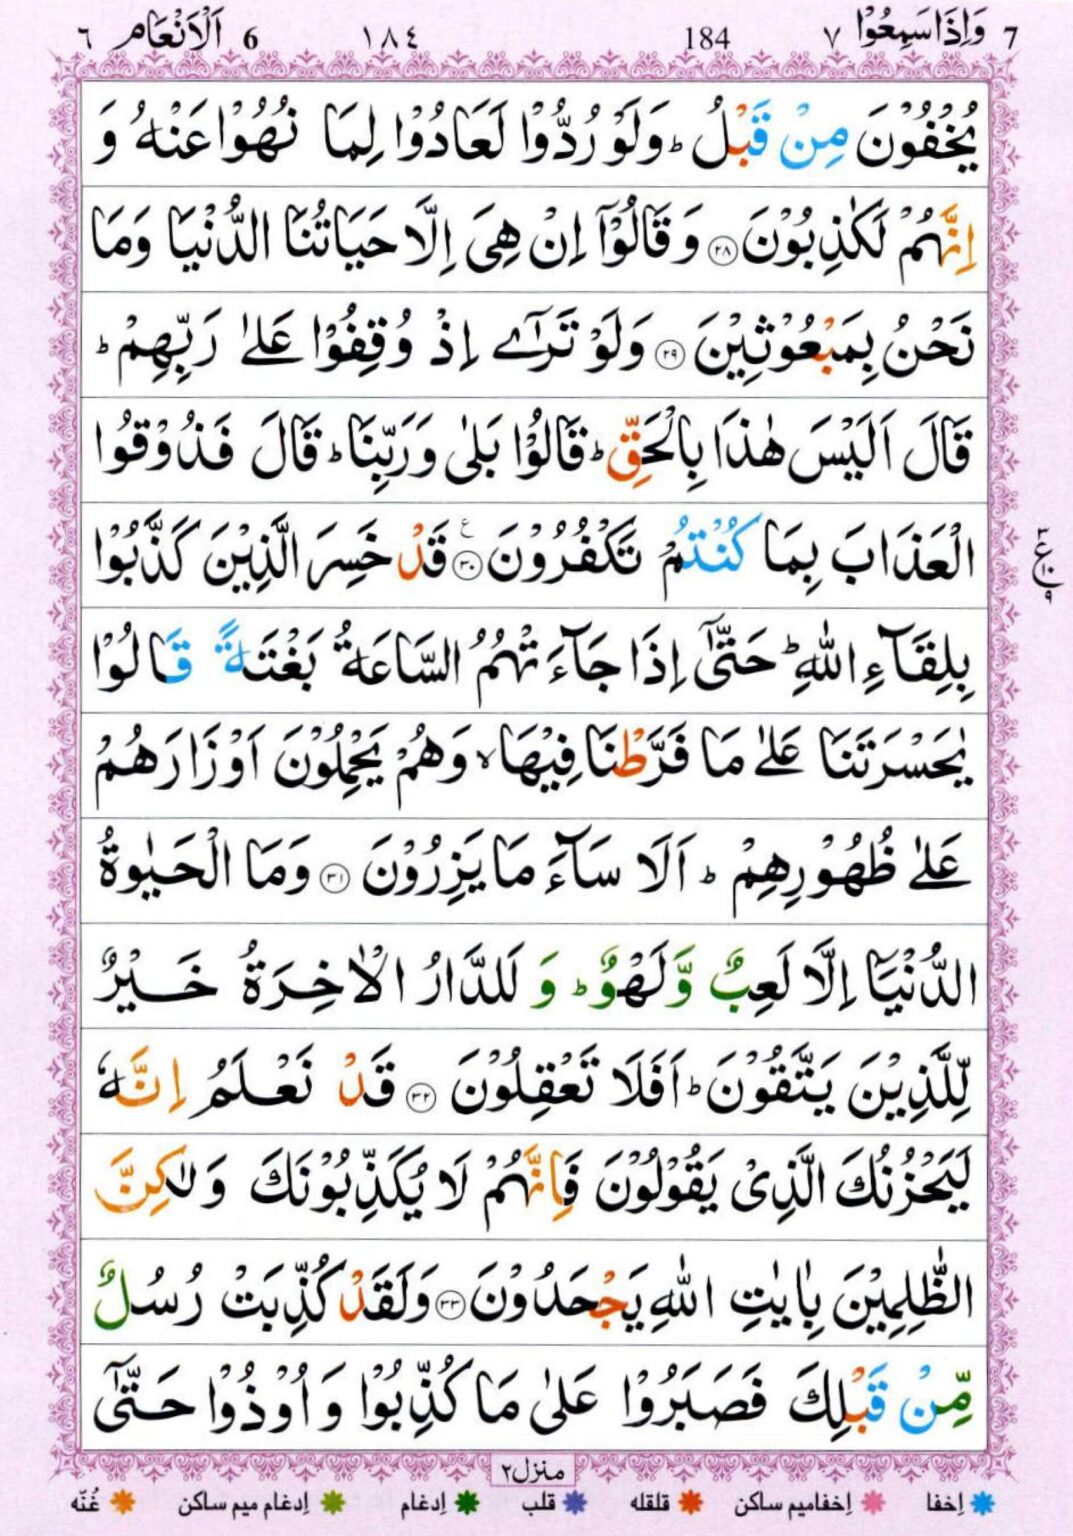 7 وَاِذَا سَمِعُوْا ٧ 184 ١٨٤ 6 اَلْاَنْعَام ٦
يُخْفُوْنَ مِنْ قَبْلُ ؕ وَلَوْ رُدُّوْا لَعَادُوْا لِمَا نُهُوْا عَنْهُ وَ
اِنَّهُمْ لَكٰذِبُوْنَ ﴿۲۸﴾ وَقَالُوْۤا اِنْ هِیَ اِلَّا حَيَاتُنَا الدُّنْيَا وَمَا
نَحْنُ بِمَبْعُوْثِيْنَ ﴿۲۹﴾ وَلَوْ تَرٰۤی اِذْ وُقِفُوْا عَلٰی رَبِّهِمْ ؕ
قَالَ اَلَيْسَ هٰذَا بِالْحَقِّ ؕ قَالُوْا بَلٰی وَرَبِّنَا ؕ قَالَ فَذُوْقُوا
الْعَذَابَ بِمَا كُنْتُمْ تَكْفُرُوْنَ ﴿۳۰﴾ ع قَدْ خَسِرَ الَّذِيْنَ كَذَّبُوْا
٣ ع ١٠ ٩
بِلِقَآءِ اللّٰهِ ؕ حَتّٰۤی اِذَا جَآءَتْهُمُ السَّاعَةُ بَغْتَةً قَالُوْا
يٰحَسْرَتَنَا عَلٰی مَا فَرَّطْنَا فِيْهَا ۙ وَهُمْ يَحْمِلُوْنَ اَوْزَارَهُمْ
عَلٰی ظُهُوْرِهِمْ ؕ اَلَا سَآءَ مَا يَزِرُوْنَ ﴿۳۱﴾ وَمَا الْحَيٰوةُ
الدُّنْيَاۤ اِلَّا لَعِبٌ وَّلَهْوٌ ؕ وَ لَلدَّارُ الْاٰخِرَةُ خَيْرٌ
لِّلَّذِيْنَ يَتَّقُوْنَ ؕ اَفَلَا تَعْقِلُوْنَ ﴿۳۲﴾ قَدْ نَعْلَمُ اِنَّهٗ
لَيَحْزُنُكَ الَّذِیْ يَقُوْلُوْنَ فَاِنَّهُمْ لَا يُكَذِّبُوْنَكَ وَلٰكِنَّ
الظّٰلِمِيْنَ بِاٰيٰتِ اللّٰهِ يَجْحَدُوْنَ ﴿۳۳﴾ وَلَقَدْ كُذِّبَتْ رُسُلٌ
مِّنْ قَبْلِكَ فَصَبَرُوْا عَلٰی مَا كُذِّبُوْا وَاُوْذُوْا حَتّٰۤی
منزل٢
اِخفا اِخفامیم ساکن قلقله قلب اِدغام اِدغام میم ساکن غُنّه